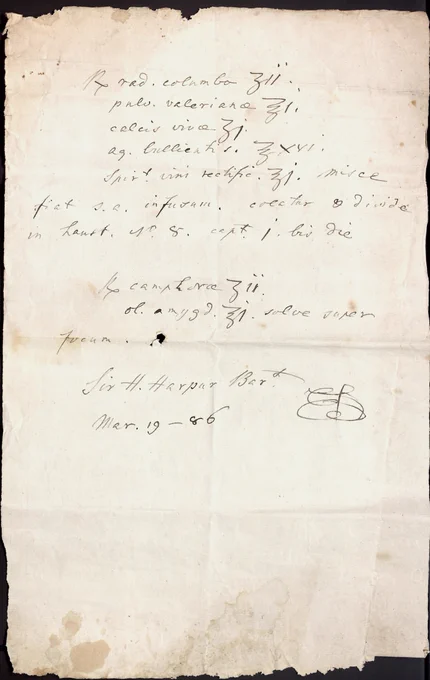 ℞ rad. columbo ʒii.
pulv. valerianæ ʒj.
calcis vivæ ʒj.
aq. bullientis. ℥xvi.
Spirt. vini rectific. ℥j. misce
fiat s.a. infusum. coletur & divide
in haust. No. 8. capt. j. bis die
℞ camphoræ ʒii.
ol. amygd. ℥j. solve super
focum.
Sir H. Harpur Bart.
Mar. 19 – 86